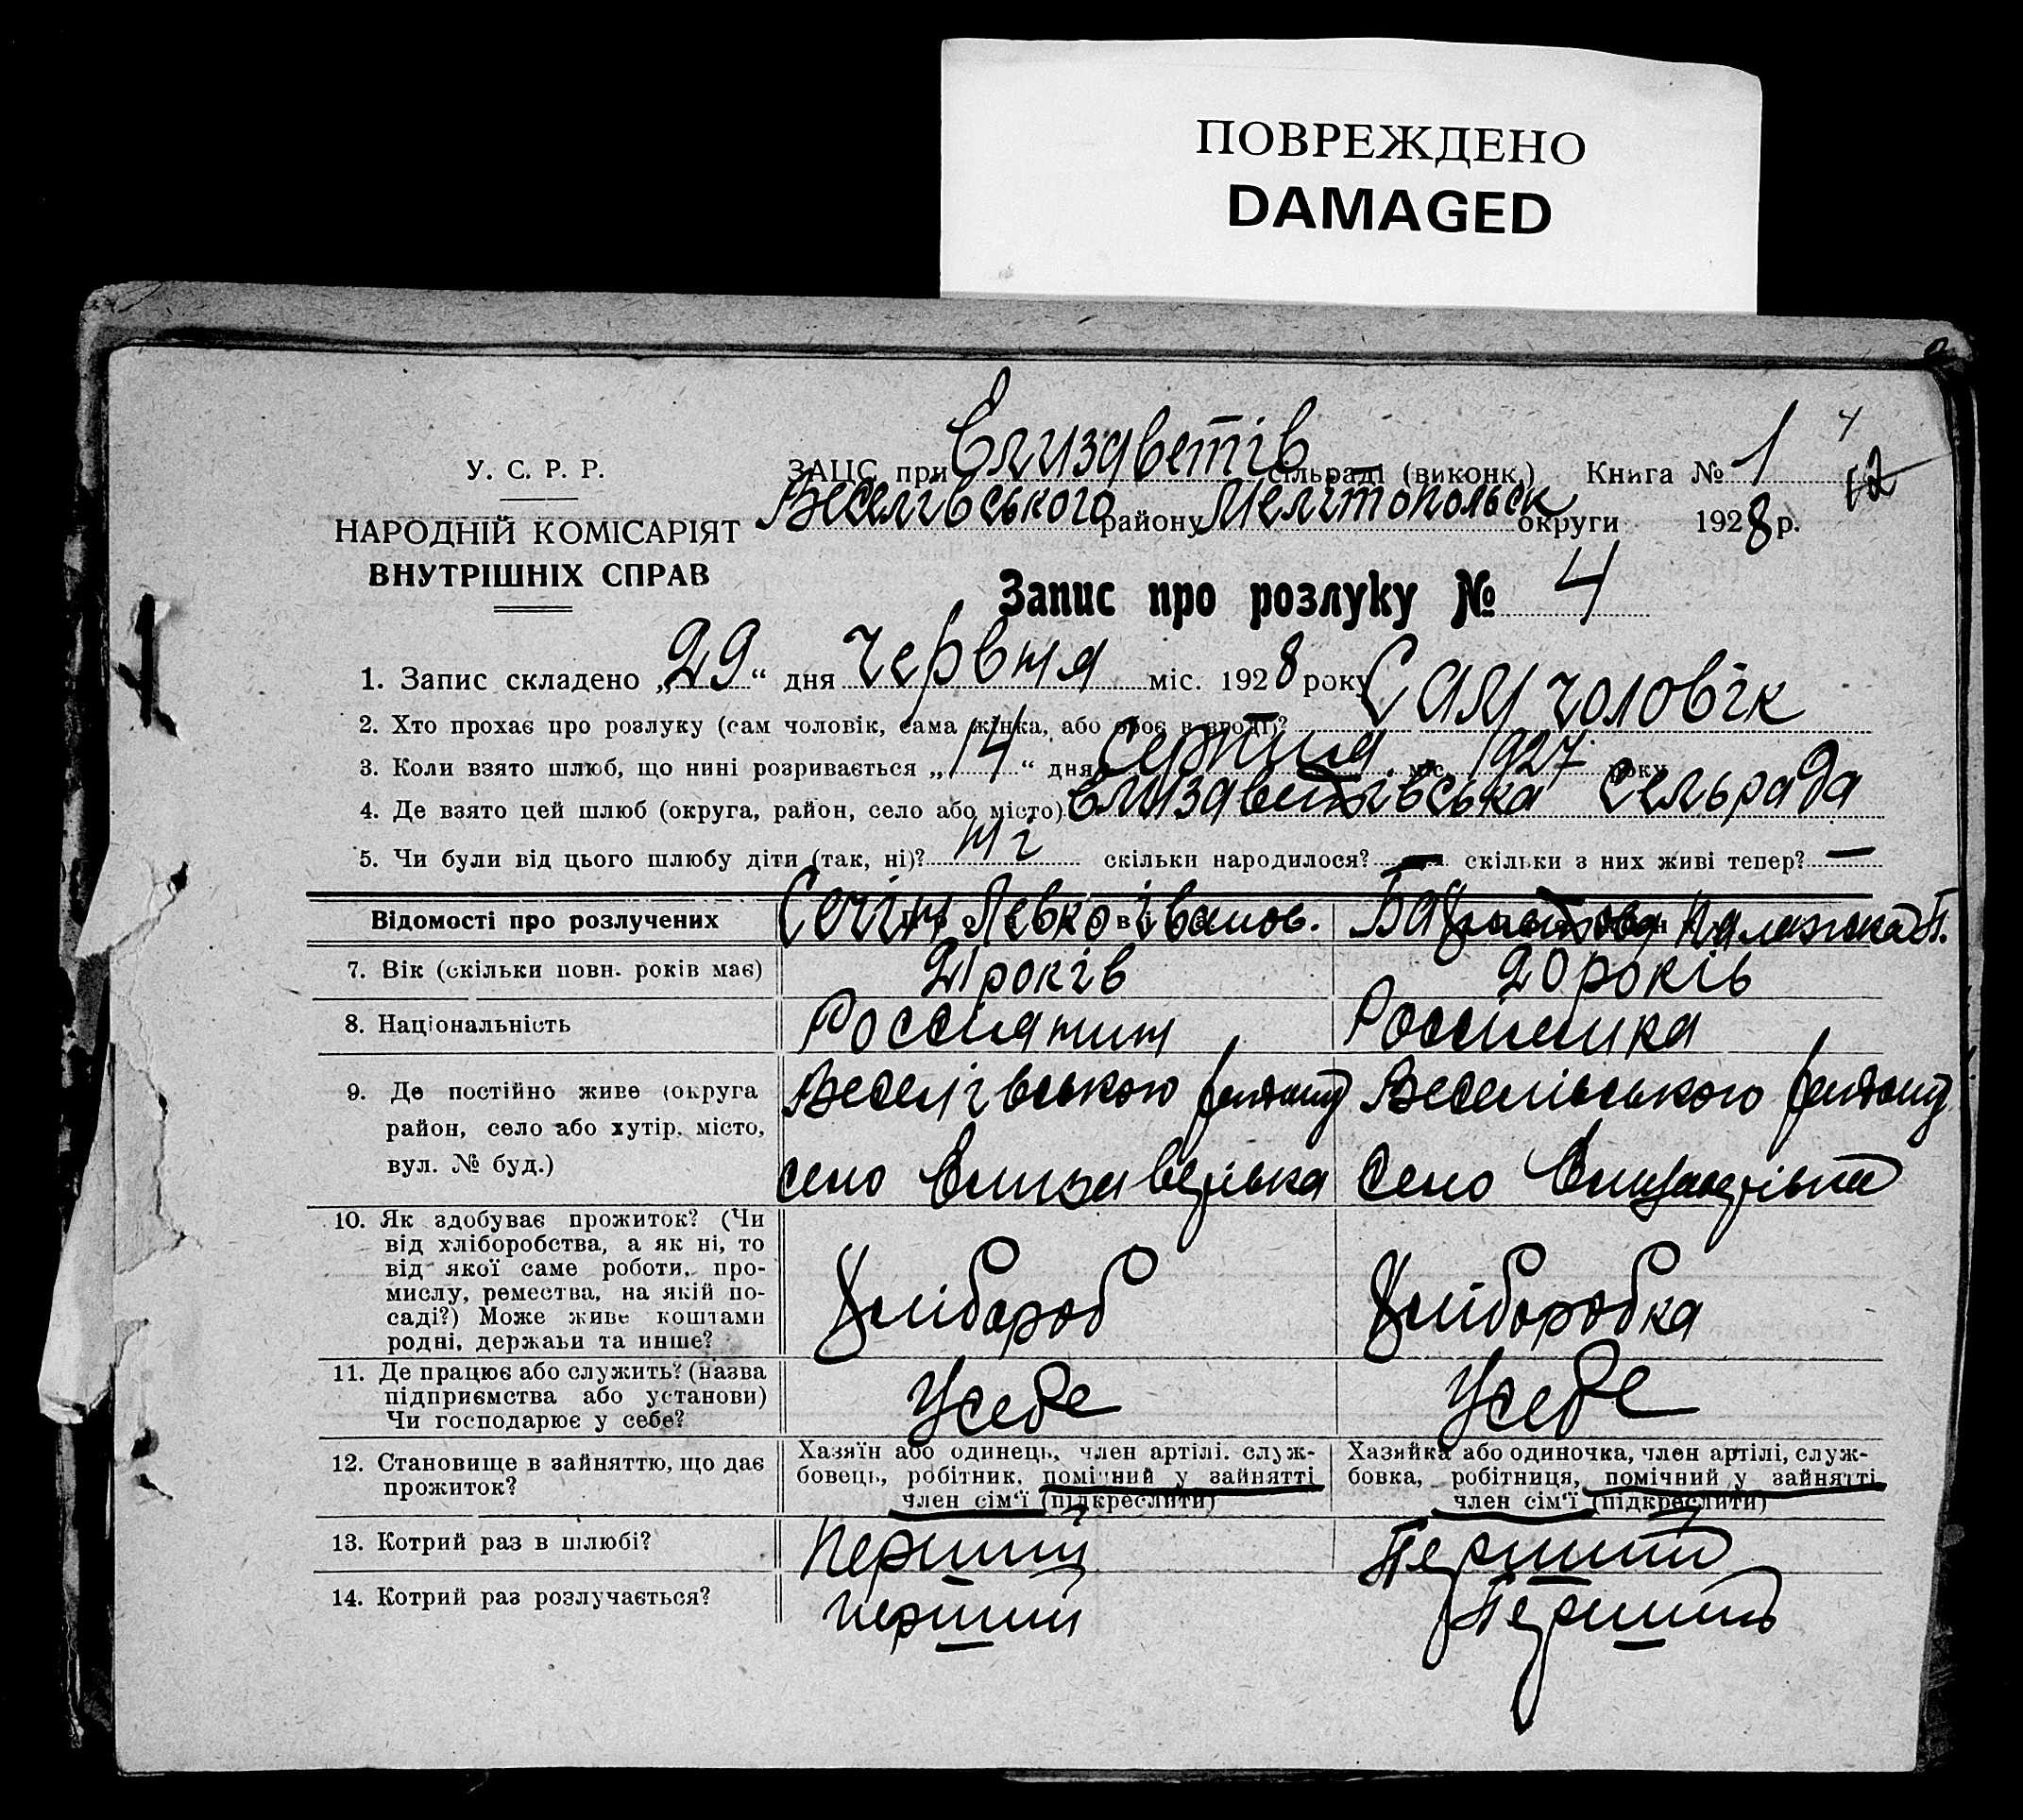 ПОВРЕЖДЕНО
DAMAGED
4
12
У. С. Р. Р.
НАРОДНІЙ КОМІСАРІЯТ
ВНУТРІШНІХ СПРАВ
ЗАЦС при Єлизаветів сільраді (виконк.) Книга № 1
Веселівського району Мелітопольск округи 1928 р.
Запис про розлуку № 4
1. Запис складено „29“ дня червня міс. 1928 року
2. Хто прохає про розлуку (сам чоловік, сама жінка, або обоє в згоді)? Сам чоловік
3. Коли взято шлюб, що нині розривається „14“ дня серпня міс. 1927 року
4. Де взято цей шлюб (округа, район, село або місто) Єлизаветівська сельрада
5. Чи були від цього шлюбу діти (так, ні)? ні скільки народилося? — скільки з них живі тепер? —
Відомості про розлучених Сечін Левко Іванов. Палажка П.
7. Вік (скільки повн. років має) 21 років 20 років
8. Національність Россіянин Россіянка
9. Де постійно живе (округа Веселівського району Веселівського району
район, село або хутір, місто,
вул. № буд.) село Єлизаветівка село Єлизаветівка
10. Як здобуває прожиток? (Чи
від хліборобства, а як ні, то
від якої саме роботи, про-
мислу, ремества, на якій по-
саді?) Може живе коштами
родні, держави та инше? Хлібороб Хліборобка
11. Де працює або служить? (назва
підприємства або установи)
Чи господарює у себе? У себе У себе
12. Становище в зайняттю, що дає
прожиток?
Хазяїн або одинець, член артілі, служ-
бовець, робітник, помічний у зайнятті
член сім'ї (підкреслити)
Хазяйка або одиночка, член артілі, служ-
бовка, робітниця, помічний у зайнятті
член сім'ї (підкреслити)
13. Котрий раз в шлюбі? Перший Перший
14. Котрий раз розлучається? Перший Перший